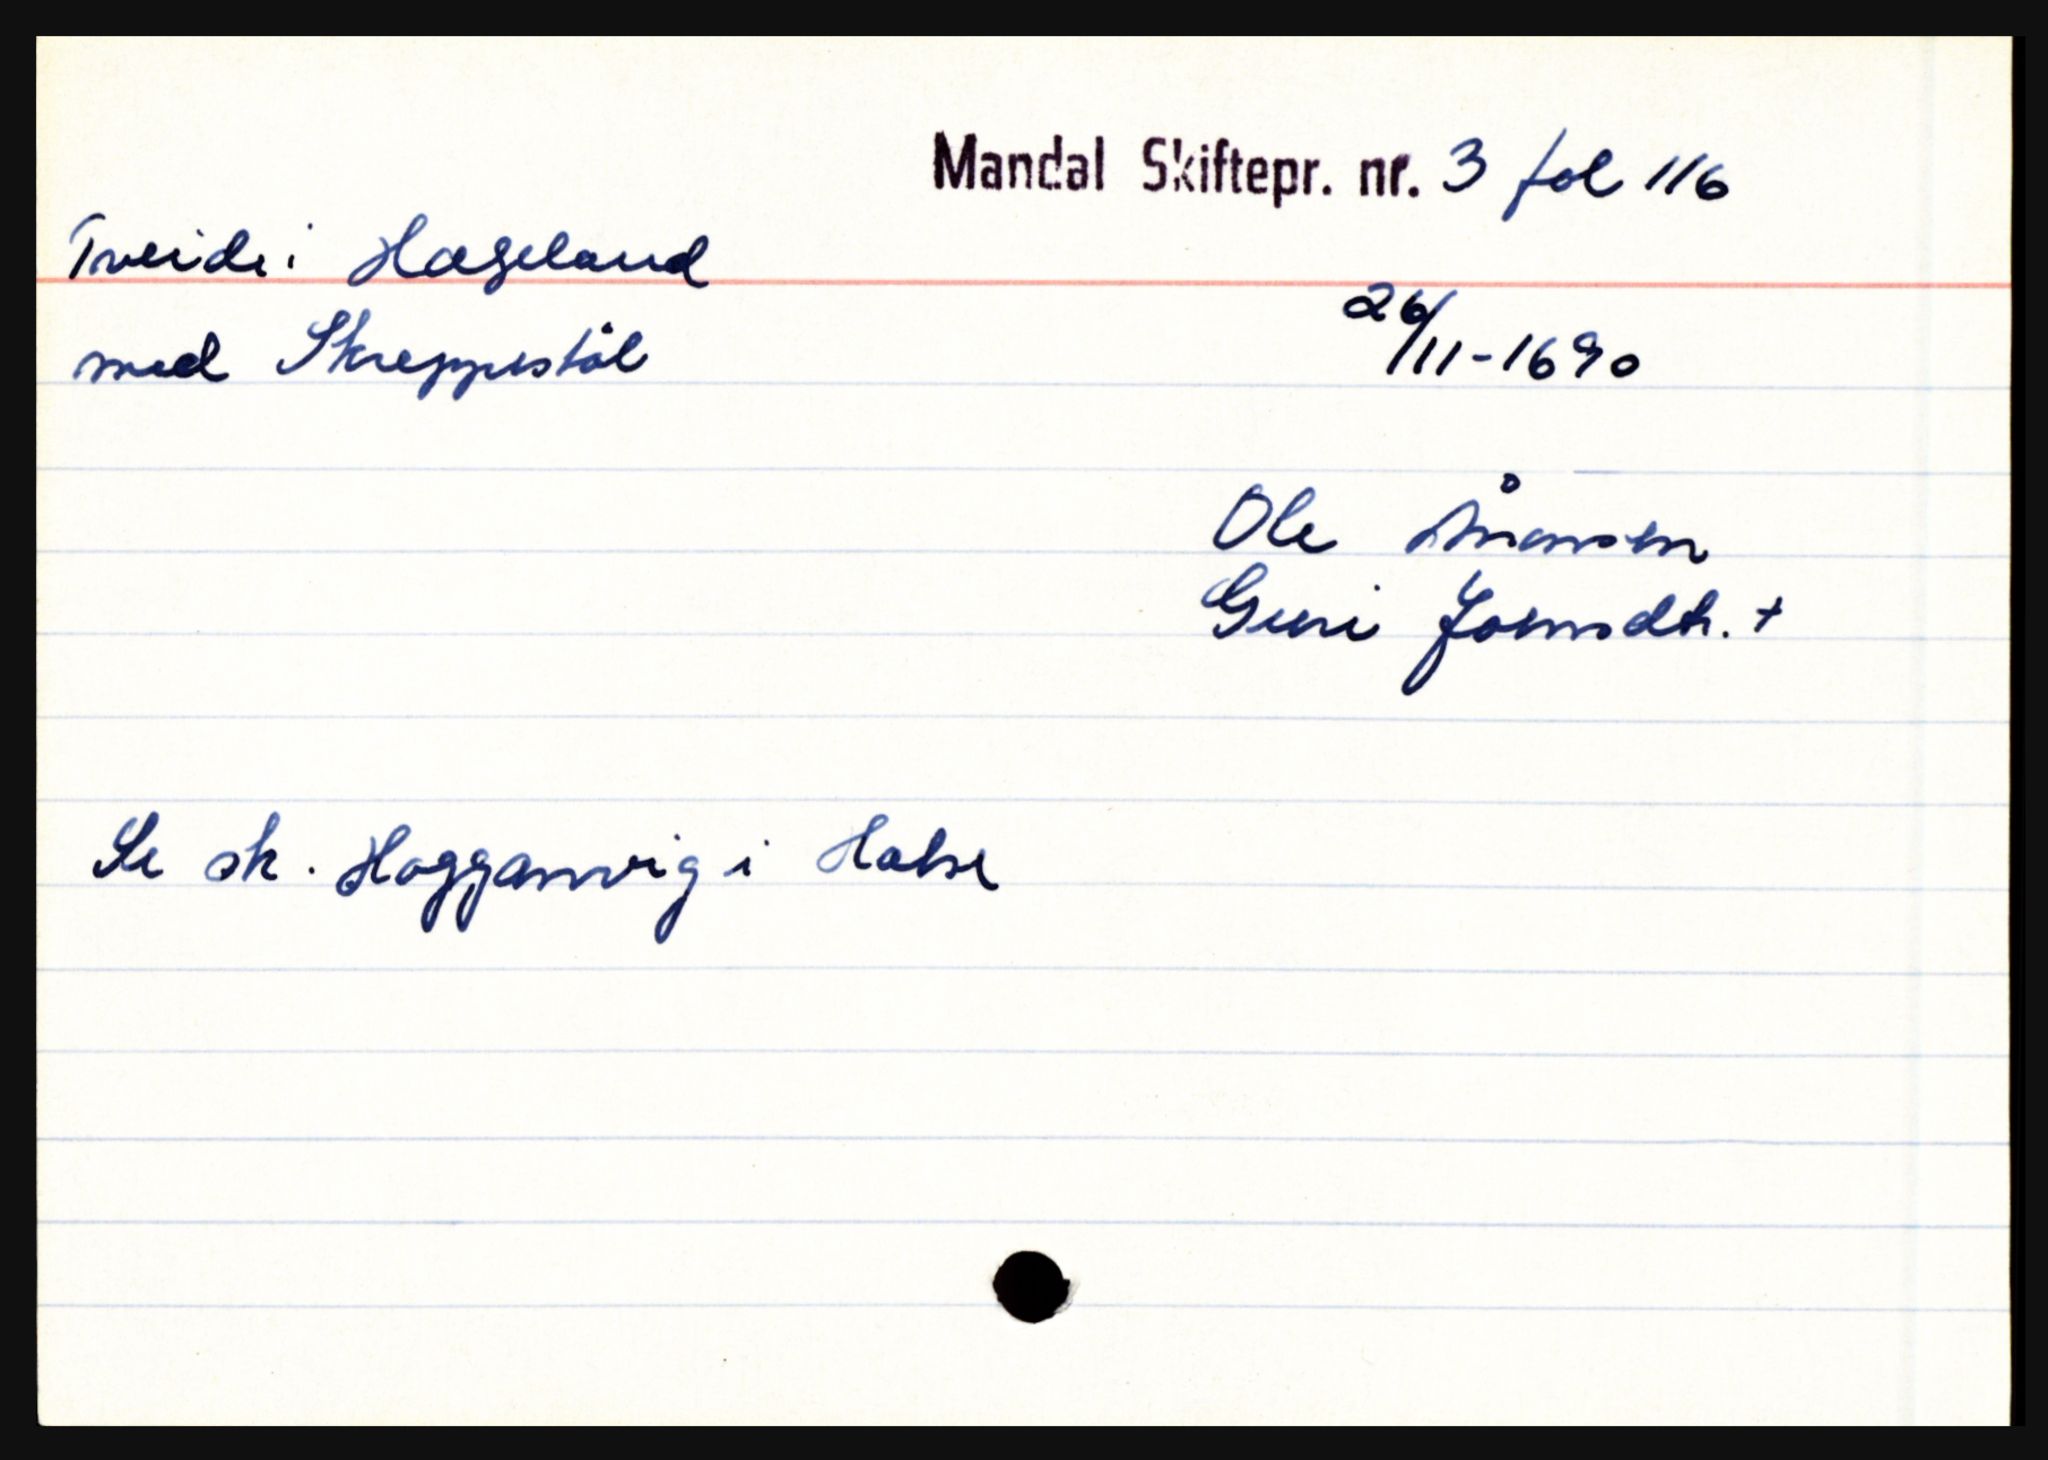 Mandal Skiftepr. nr. 3 fol 116
Tveide i Hægeland
med Skreppestöl
26/11-1690
Ole Ånonsen
Guri Joensdtr. +
Se sk. Hogganvig i Halse